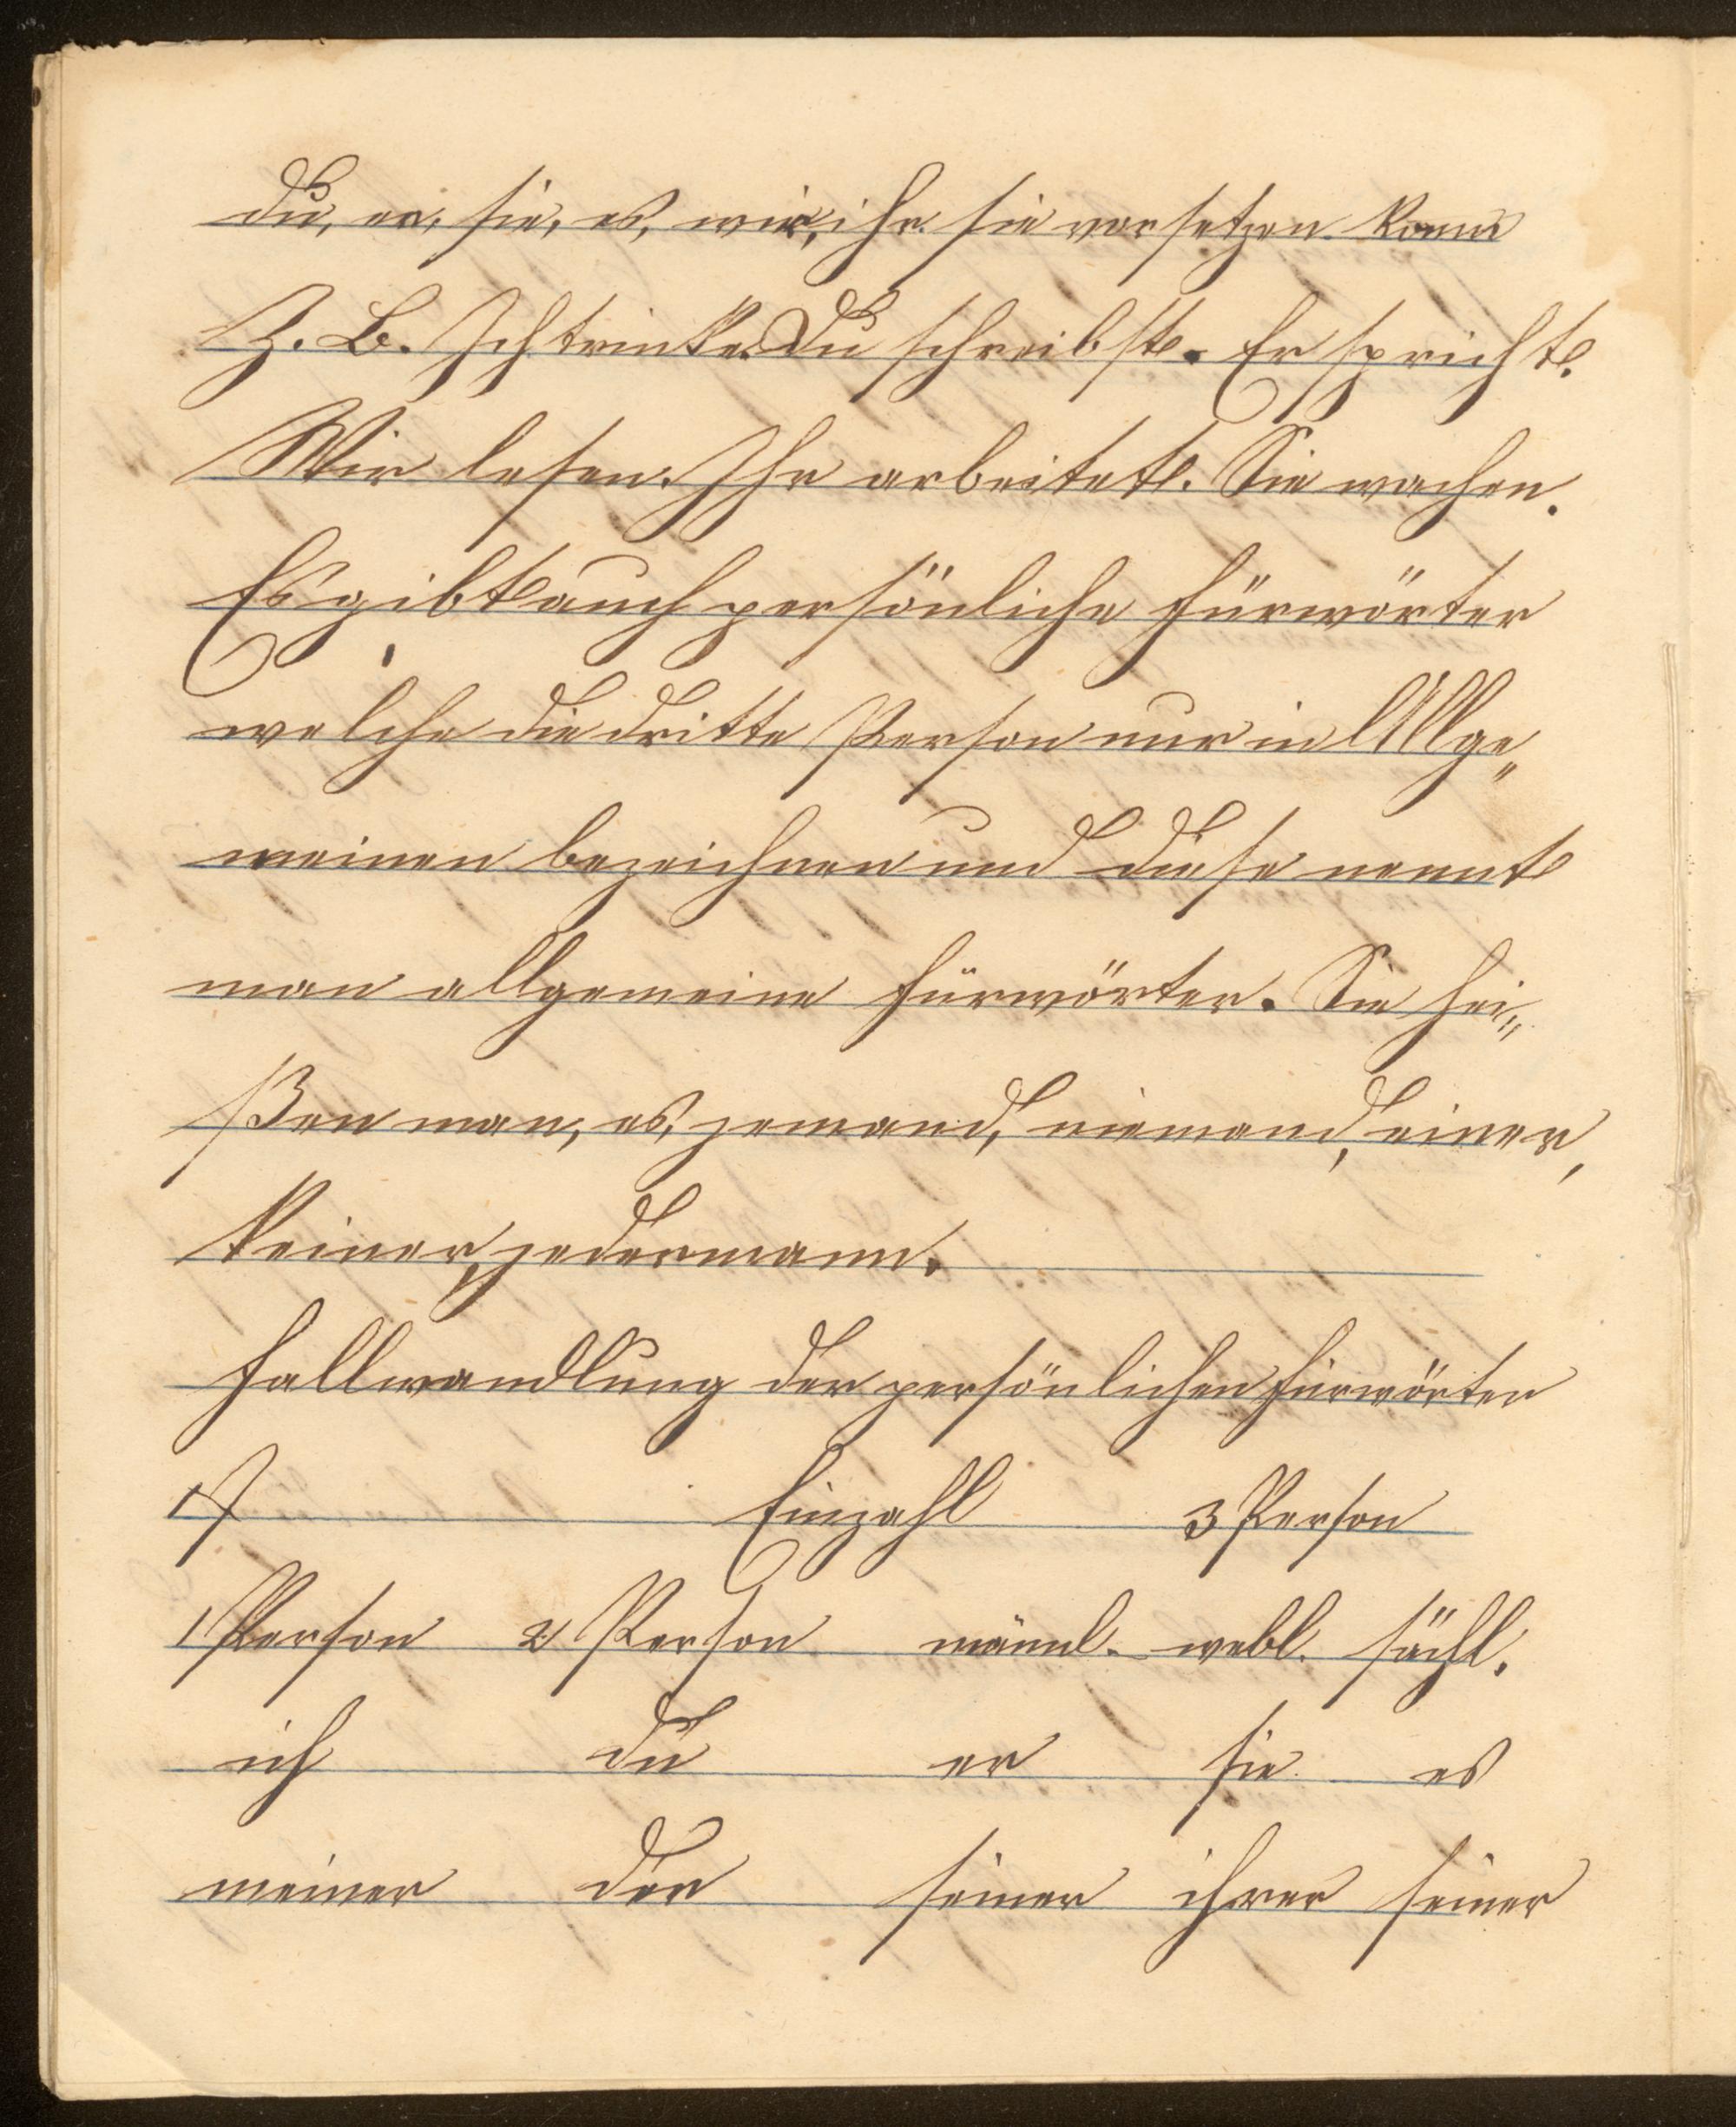 du, er, sie, es, wir, ihr. sie vorsetzen kann
Z. B. Ich trinke. Du schreibst. Er spricht.
Wir lesen. Ihr arbeitet. Sie wachen.
Es gibt auch persönliche Fürwörter
welche die dritte Person nur in Allge„
meinen bezeichnen und diese nennt
man allgemeine Fürwörter. Sie hei„
ßen man, es, jemand, niemand, einer,
keiner, jedermann.
Fallwandlung der persönlichen Fürwörter
Einzahl 3 Person
1 Person 2 Person männl. webl. sächl.
ich du er sie es
meiner der seiner ihrer seiner